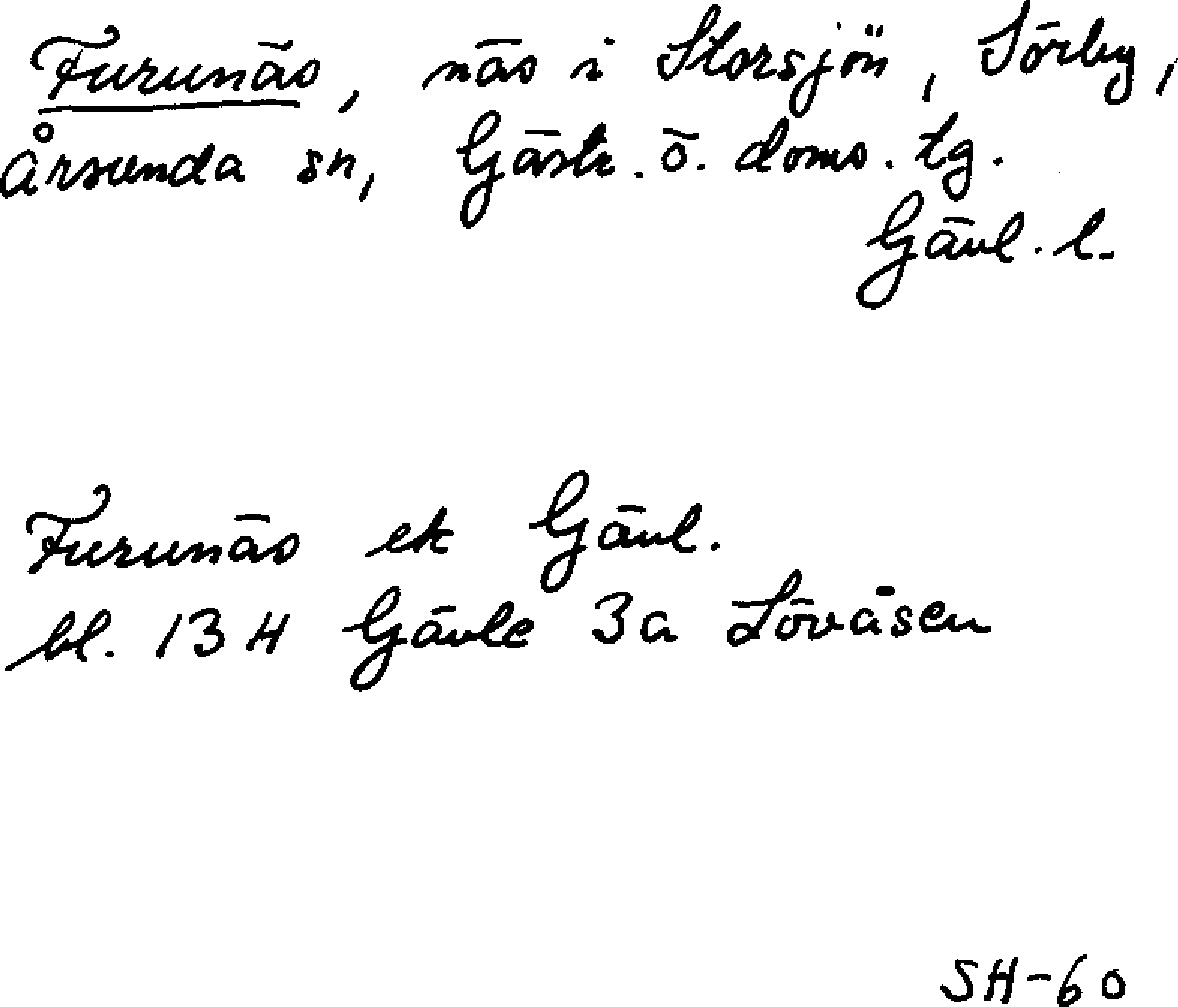 Furunäs, näs i Storsjön, Sörby,
Årsunda sn, Gästr. ö. doms. tg.
Gävl. l.
Furunäs ek Gävl.
bl. 13 H Gävle 3a Lövåsen
SH-60